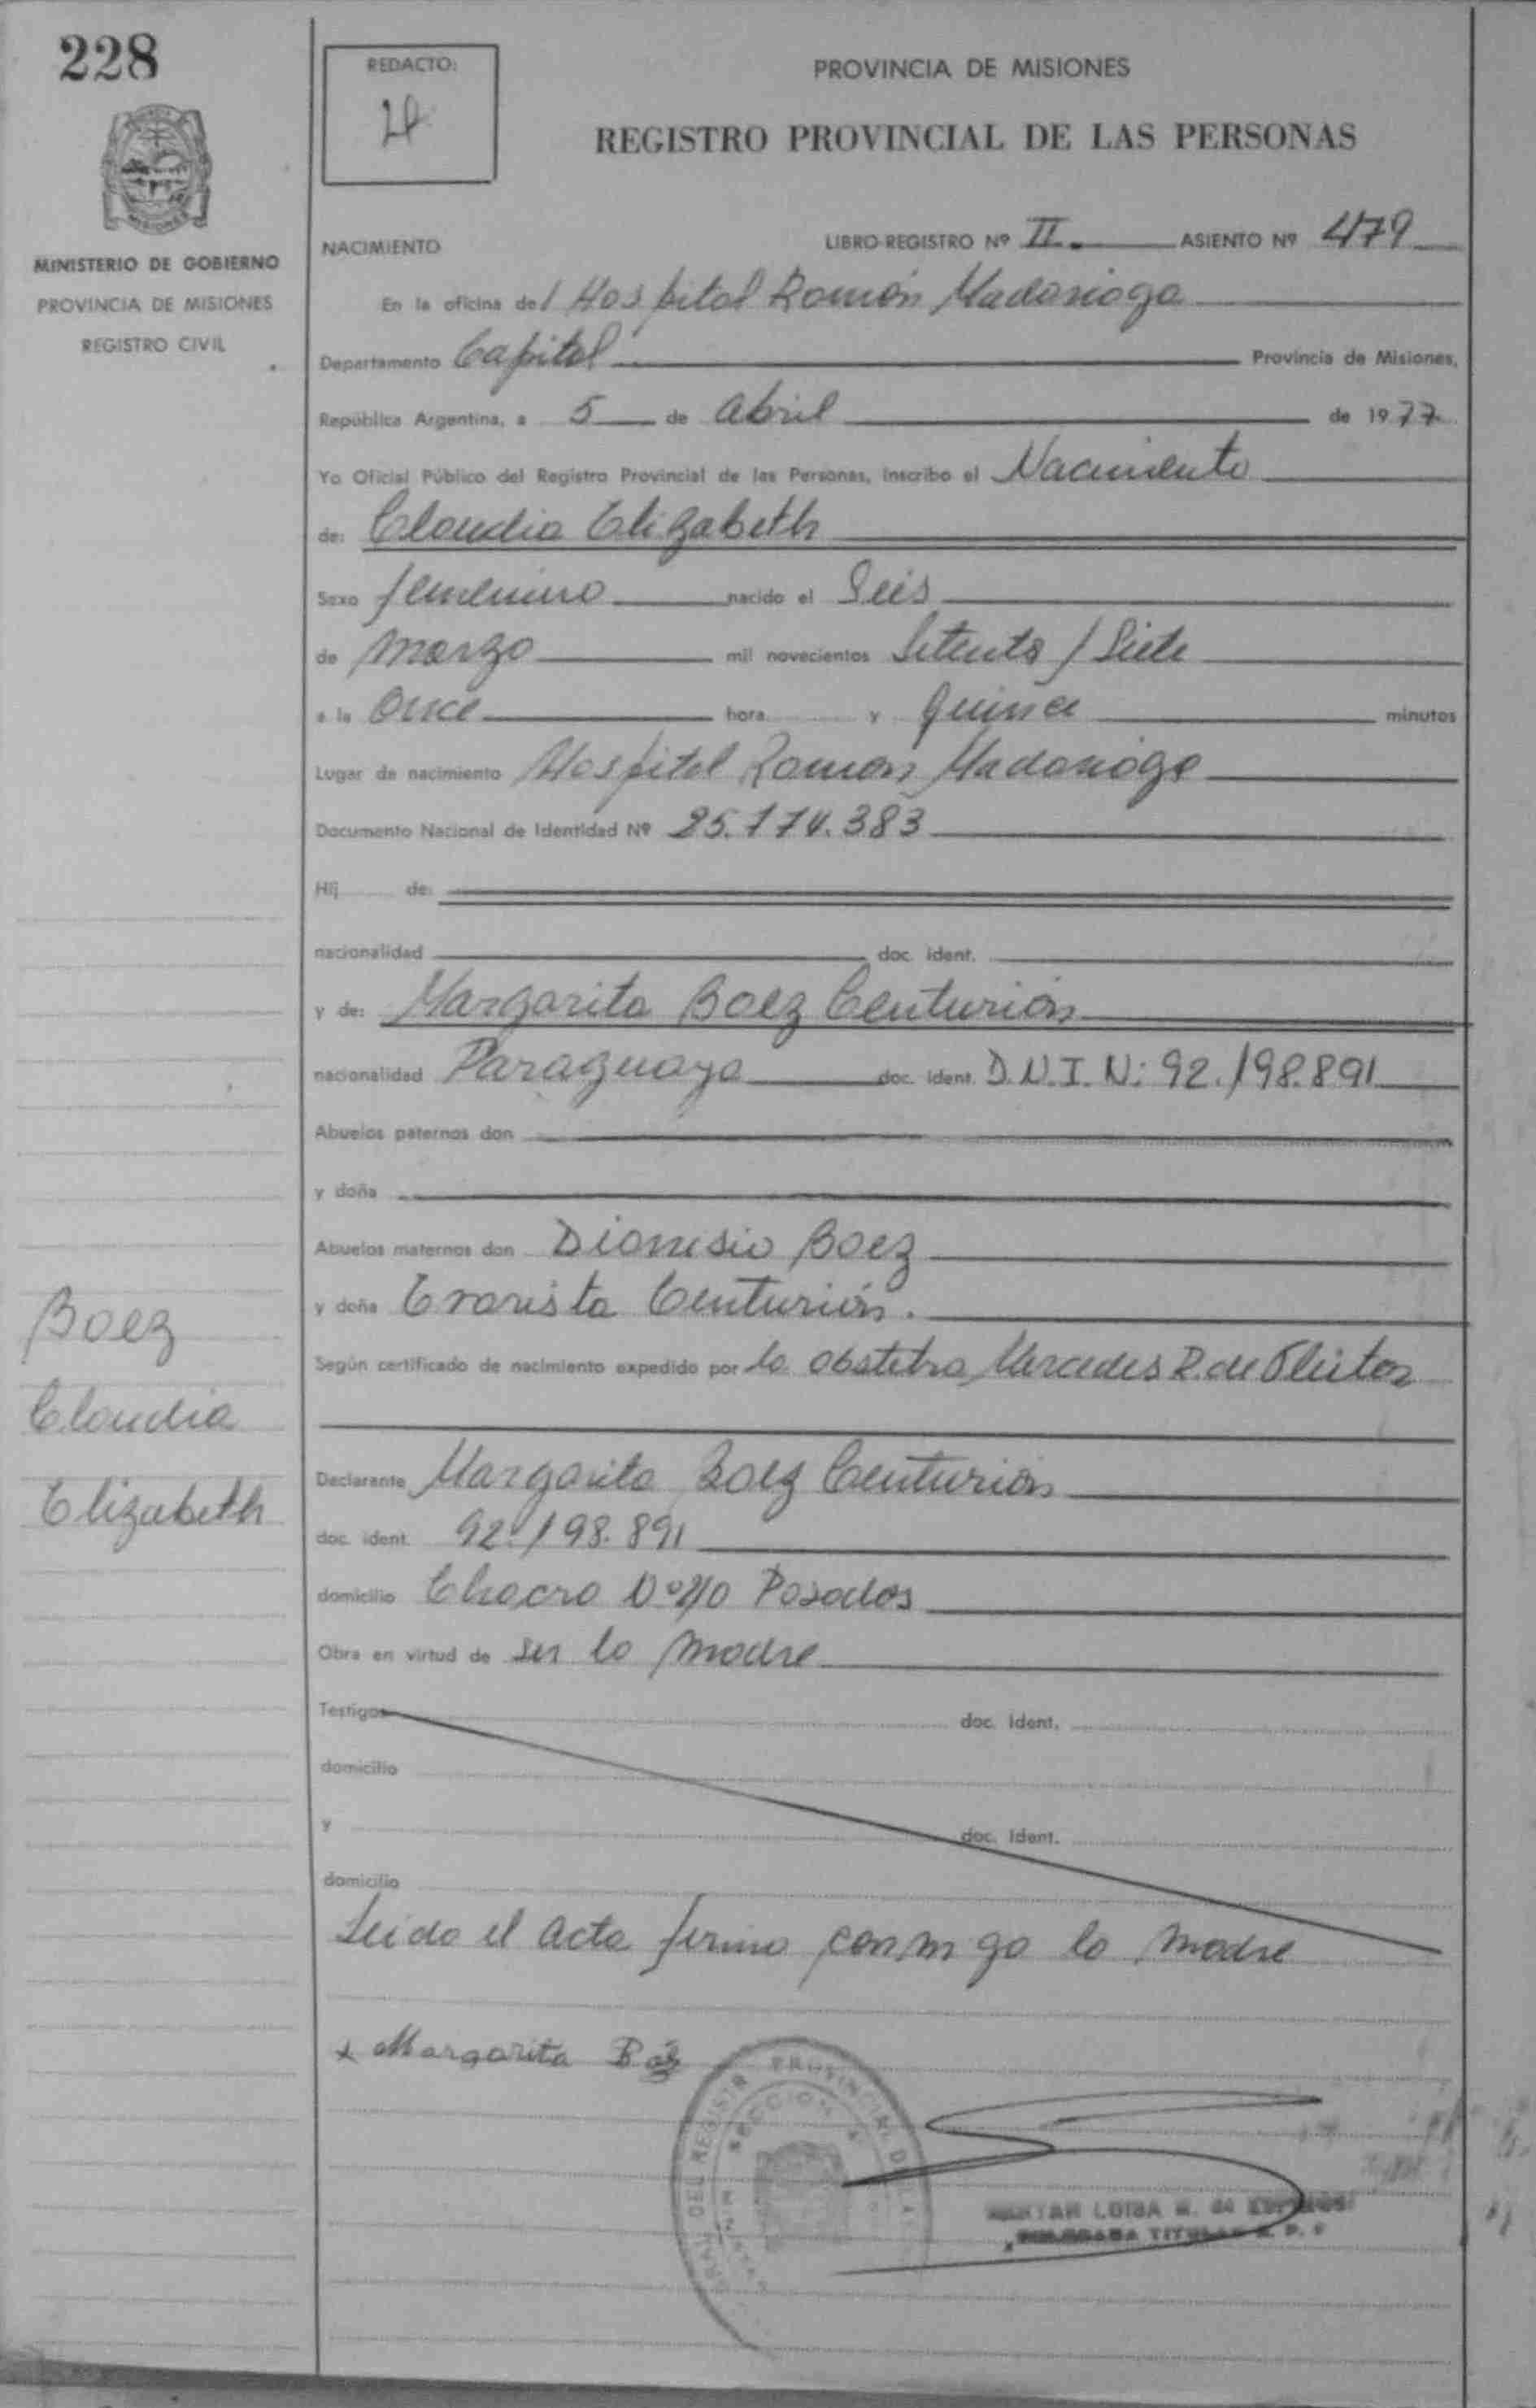 228
MINISTERIO DE GOBIERNO
PROVINCIA DE MISIONES
REGISTRO CIVIL
Baez
Claudia
Elizabeth
REDACTO:
PROVINCIA DE MISIONES
REGISTRO PROVINCIAL DE LAS PERSONAS
NACIMIENTO LIBRO-REGISTRO Nº II. ASIENTO Nº 479
En la oficina del Hospital Ramón Madariaga
Departamento Capital Provincia de Misiones,
República Argentina, a 5 de abril de 1977
Yo Oficial Público del Registro Provincial de las Personas, inscribo el Nacimiento
de: Claudia Elizabeth
Sexo femenino nacido el Seis
de marzo mil novecientos Setenta / Siete
a la Once hora y quince minutos
Lugar de nacimiento Hospital Ramón Madariaga
Documento Nacional de Identidad Nº 25.174.383
Hij de:
nacionalidad doc. ident.
y de: Margarita Baez Centurión
nacionalidad Paraguaya doc. ident. D.N.I. N: 92.198.891
Abuelos paternos don
y doña
Abuelos maternos don Dionisio Baez
y doña Evarista Centurión.
Según certificado de nacimiento expedido por la obstetra Mercedes R. de
Declarante Margarita Baez Centurión
doc. ident. 92.198.891
domicilio Chacra Posadas
Obra en virtud de ser la madre
Testigos doc. ident.
domicilio
y doc. ident.
domicilio
Leido el acta firma conmigo la madre
x Margarita Báez
REGISTRO PROVINCIAL DE LAS
SECCION
LUISA M. de
TITULAR R. P. P